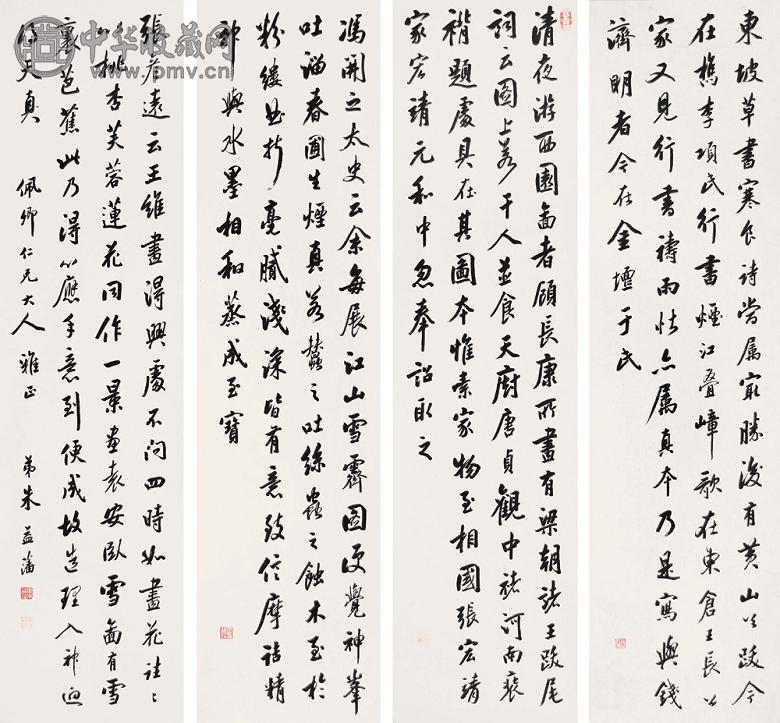 東坡草書寒食詩当属最勝後有黃山谷跋今
在檇李項氏行書煙江疊嶂歌在東倉王長公
家又見行書禱雨帖亦属真本乃是寫與錢
濟明者今在金壇于氏
清夜游西園圖者顧長康所畫有梁朝諸王跋尾
詞云圖上若干人並食天廚唐貞觀中褚河南裝
褙題處具在其圖本惟素家物至相國張宏靖
家宏靖元和中忽奉詔取之
馮開之太史云余每展江山雪霽圖便覺神峯
吐溜春圃生煙真若蠶之吐絲蟲之蝕木至於
粉縷曲折毫膩淺深皆有意致信摩詰精
神與水墨相和蒸成至寶
張彥遠云王維畫得興處不問四時如畫花往々
以桃杏芙蓉蓮花同作一景畫袁安臥雪圖有雪
裏芭蕉此乃得心應手意到便成故造理入神迥
得天真
佩卿仁兄大人雅正
弟朱益藩
中华收藏网
www.pmv.cn